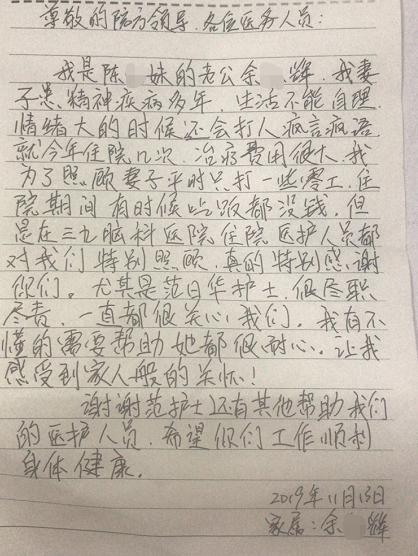 尊敬的院方领导、各位医务人员:
我是陈 妹的老公余 辉,我妻
子患精神疾病多年,生活不能自理.
情绪大的时候还会打人疯言疯语.
就今年住院几次,治疗费用很大,我
为了照顾妻子平时只打一些零工.住
院期间有时候吃饭都没钱,但
是在三九脑科医院住院医护人员都
对我们特别照顾,真的特别感谢
你们。尤其是范日华护士,很尽职
尽责,一直都很关心我们。我有不
懂的需要帮助她都很耐心,让我
感受到家人般的关怀!
谢谢范护士还有其他帮助我们
的医护人员,希望你们工作顺利
身体健康.
2019年11月13日
家属:余 辉